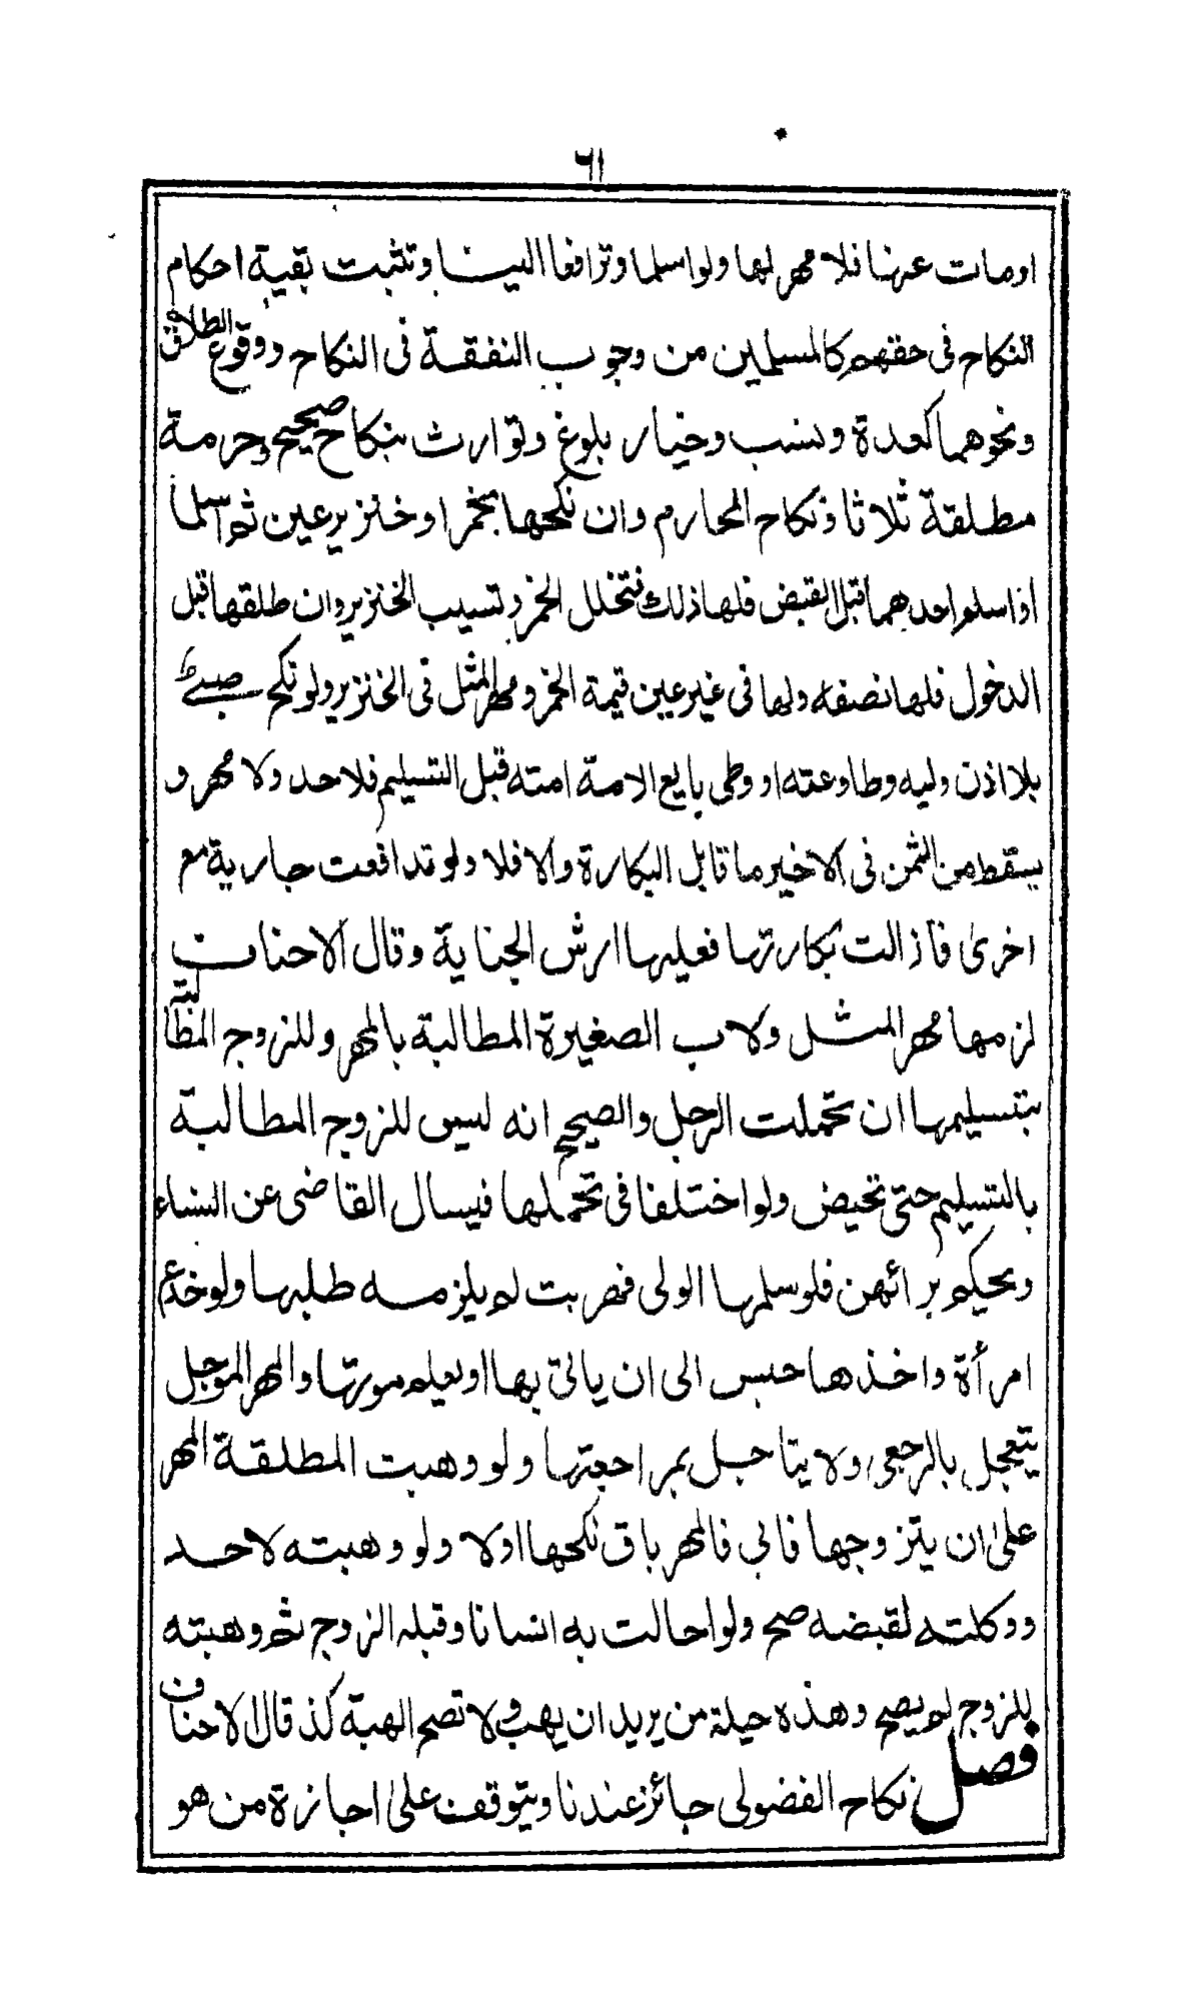 ٦١
اومات عنها فلا مهر لها ولو اسلما وترافعا الينا وتثبت بقية احكام
النكاح فى حقهم كالمسلمين من وجوب النفقة فى النكاح ووقوع الطلاق
ونحوهما كعدة ونسب وخيار بلوغ وتوارث بنكاح صحيح وحرمة
مطلقة ثلاثا ونكاح المحارم وان نكحها بخمر او خنزير عين ثم اسلما
او اسلم احدهما قبل القبض فلها ذلك فتخلل الخمر وتسيب الخنزير وان طلقها قبل
الدخول فلها نصفه ولها فى غير عين قيمة الخمر ومهر المثل فى الخنزير ولو نكح صبى
بلا اذن وليه وطاوعته او وطى بايع الامة امته قبل التسليم فلا حد ولا مهر و
يسقط من الثمن فى الاخير ما قابل البكارة والا فلا ولو تدافعت جارية مع
اخرى فازالت بكارتها فعليها ارش الجناية وقال الاحناف
لزمها مهر المثل ولاب الصغيرة المطالبة بالمهر وللزوج المطالبة
بتسليمها ان تحملت الرجل والصحيح انه ليس للزوج المطالبة
بالتسليم حتى تحيض ولو اختلفا فى تحملها فيسال القاضى عن النساء
ويحكم برائهن فلو سلمها الولى فهربت لم يلزمه طلبها ولو خدع
امرأة واخذها حبس الى ان ياتى بها او يعلم موتها والمهر الموجل
يتعجل بالرجعى ولا يتاجل بمراجعتها ولو وهبت المطلقة المهر
على ان يتزوجها فابى فالمهر باق نكحها اولا ولو وهبته لاحد
ووكلته لقبضه صح ولو احالت به انسانا وقبله الزوج ثم وهبته
للزوج لم يصح وهذه حيلة من يريد ان يهب ولا تصح الهبة كذ قال الاحناف
فصل نكاح الفضولى جائز عندنا ويتوقف على اجازة من هو